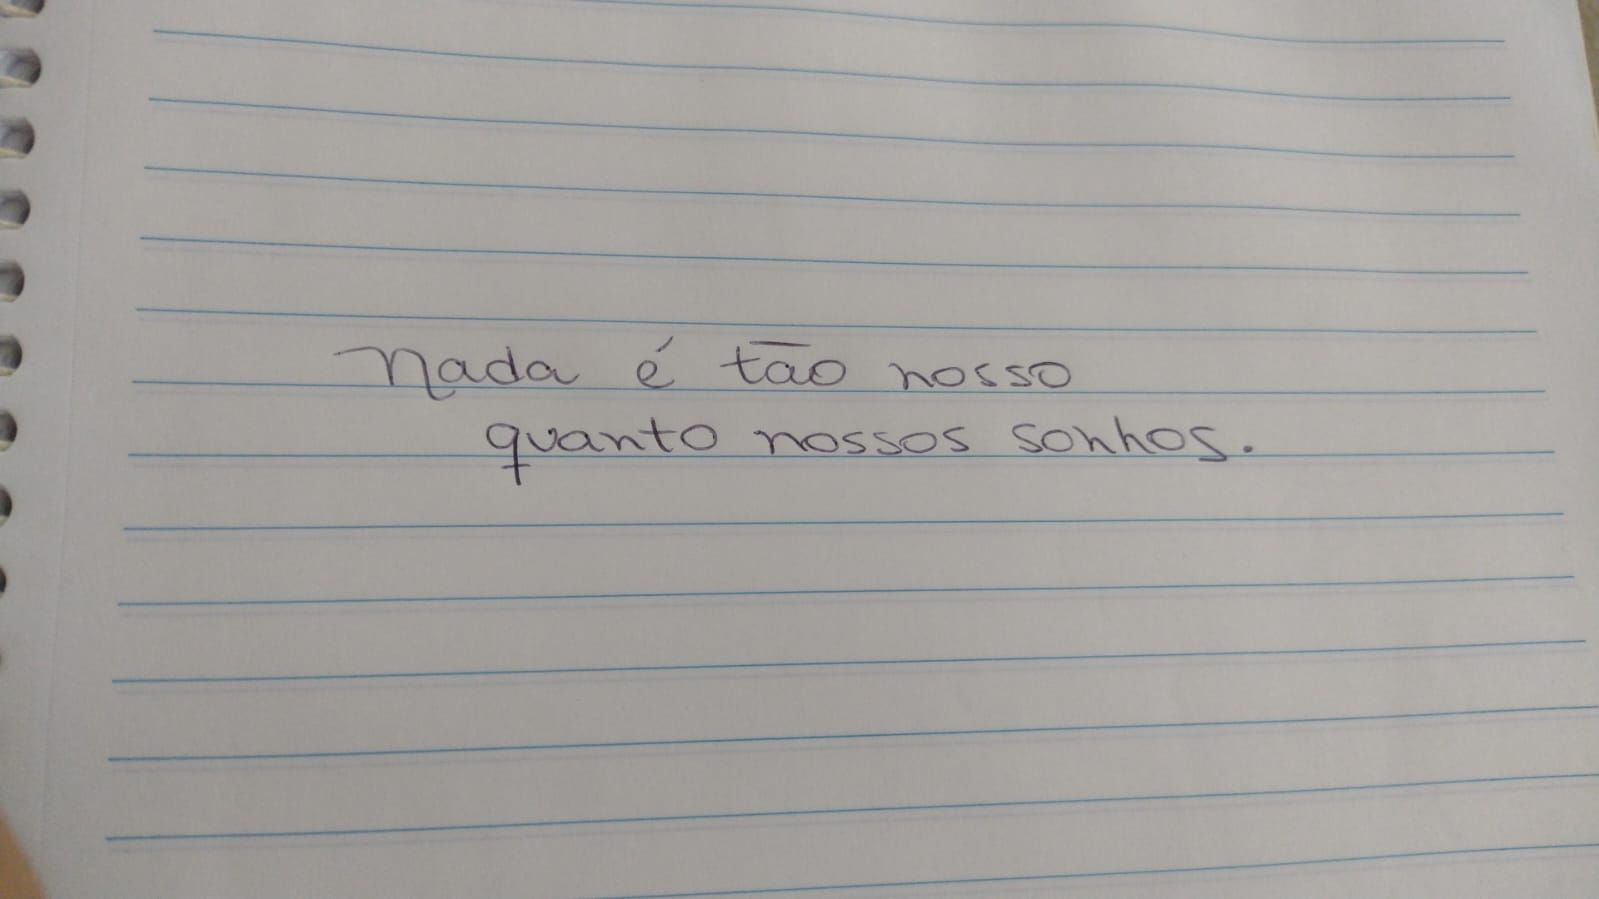 Nada é tão nosso
quanto nossos sonhos.